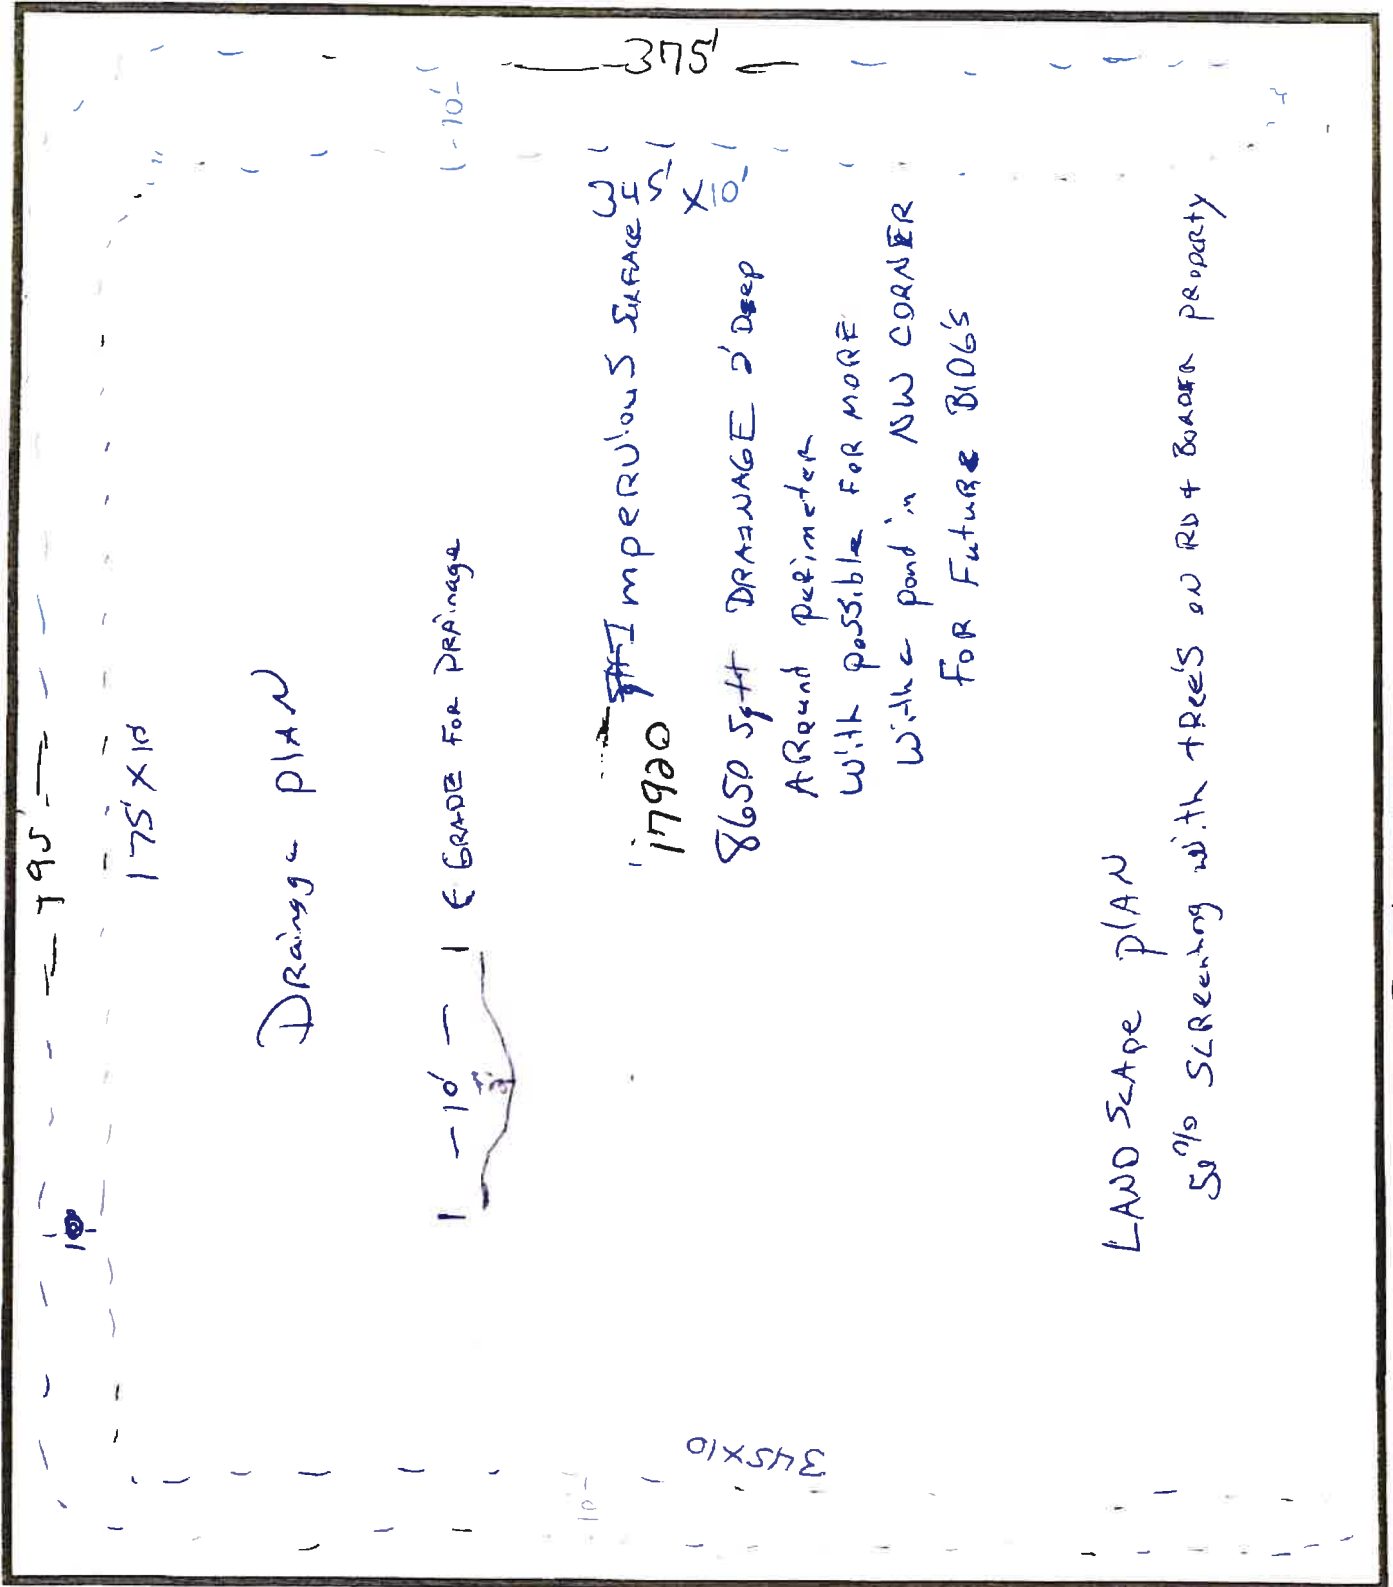 375'
-10'-
345' X10'
195'
175' X 10'
10'
Drainge plAN
- 10' -
2'
← GRADE FOR DRAinage
Imperulous SurFACE
17920
8650 Sqft DRAINAGE 2' Deep
ARound perimeter
With possible FOR MORE
With a pond in NW CORNER
FOR Future BlDG'S
345X10
-10-
LANDSCApe plAN
50% SCReening with tRee'S ON RD + BORDER pRopeRty